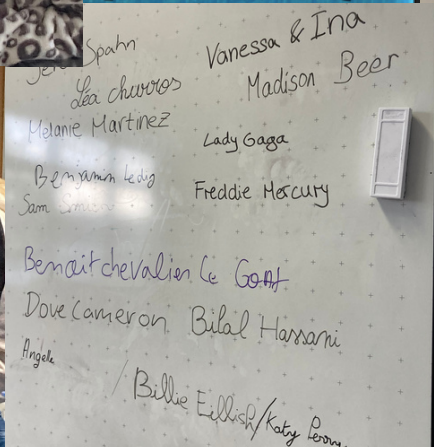 Spahn
Vanessa & Ina
Léa churros
Madison Beer
Melanie Martinez
Lady Gaga
Benjamin Ledig
Freddie Mercury
Sam
Benoit chevalier le Goat
Dove Cameron Bilal Hassani
Angele
/ Billie Eillish/Katy Perry